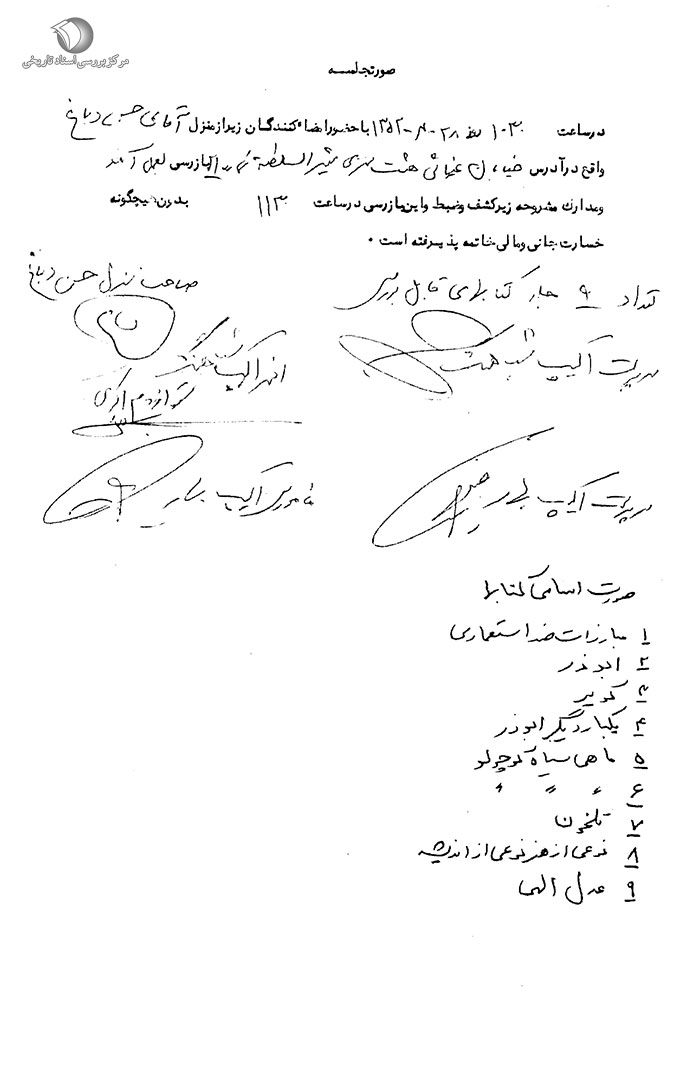 مرکز بررسی اسناد تاریخی
صورتجلسه
در ساعت ۱۰۳۰ روز ۲۸-۴-۱۳۵۲ با حضور امضاء کنندگان زیر از منزل آقای حسن دباغ
واقع در آدرس خیابان غیاثی هشت متری مشیرالسلطنه بازرسی بعمل آمد
و مدارک مشروحه زیر کشف و ضبط و این بازرسی در ساعت ۱۱۳۰ بدون هیچگونه
خسارت جانی و مالی خاتمه پذیرفته است .
تعداد ۹ جلد کتابهای قابل بررسی
صاحب منزل حسن دباغ
سرپرست اکیپ شب هشت
افسر اکیپ شب هشت
سرپرست اکیپ
مامور اکیپ
صورت اسامی کتابها
۱ مبارزات ضد استعماری
۲ ابوذر
۳ کویر
۴ یکبار دیگر ابوذر
۵ ماهی سیاه کوچولو
۶ " " "
۷ تلخون
۸ نوعی از هنر نوعی از اندیشه
۹ عدل الهی